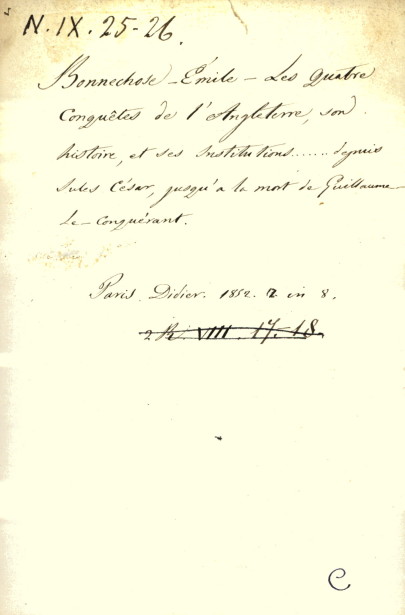 N. IX. 25-26.
Bonnechose - Émile - Les Quatre
Conquêtes de l'Angleterre, son
histoire, et ses Institutions...... depuis
Jules César, jusqu'a la mort de Guillaume-
Le-Conquérant.
Paris. Didier. 1852. 2 in 8.
2 R. VIII. 17. 18.
C